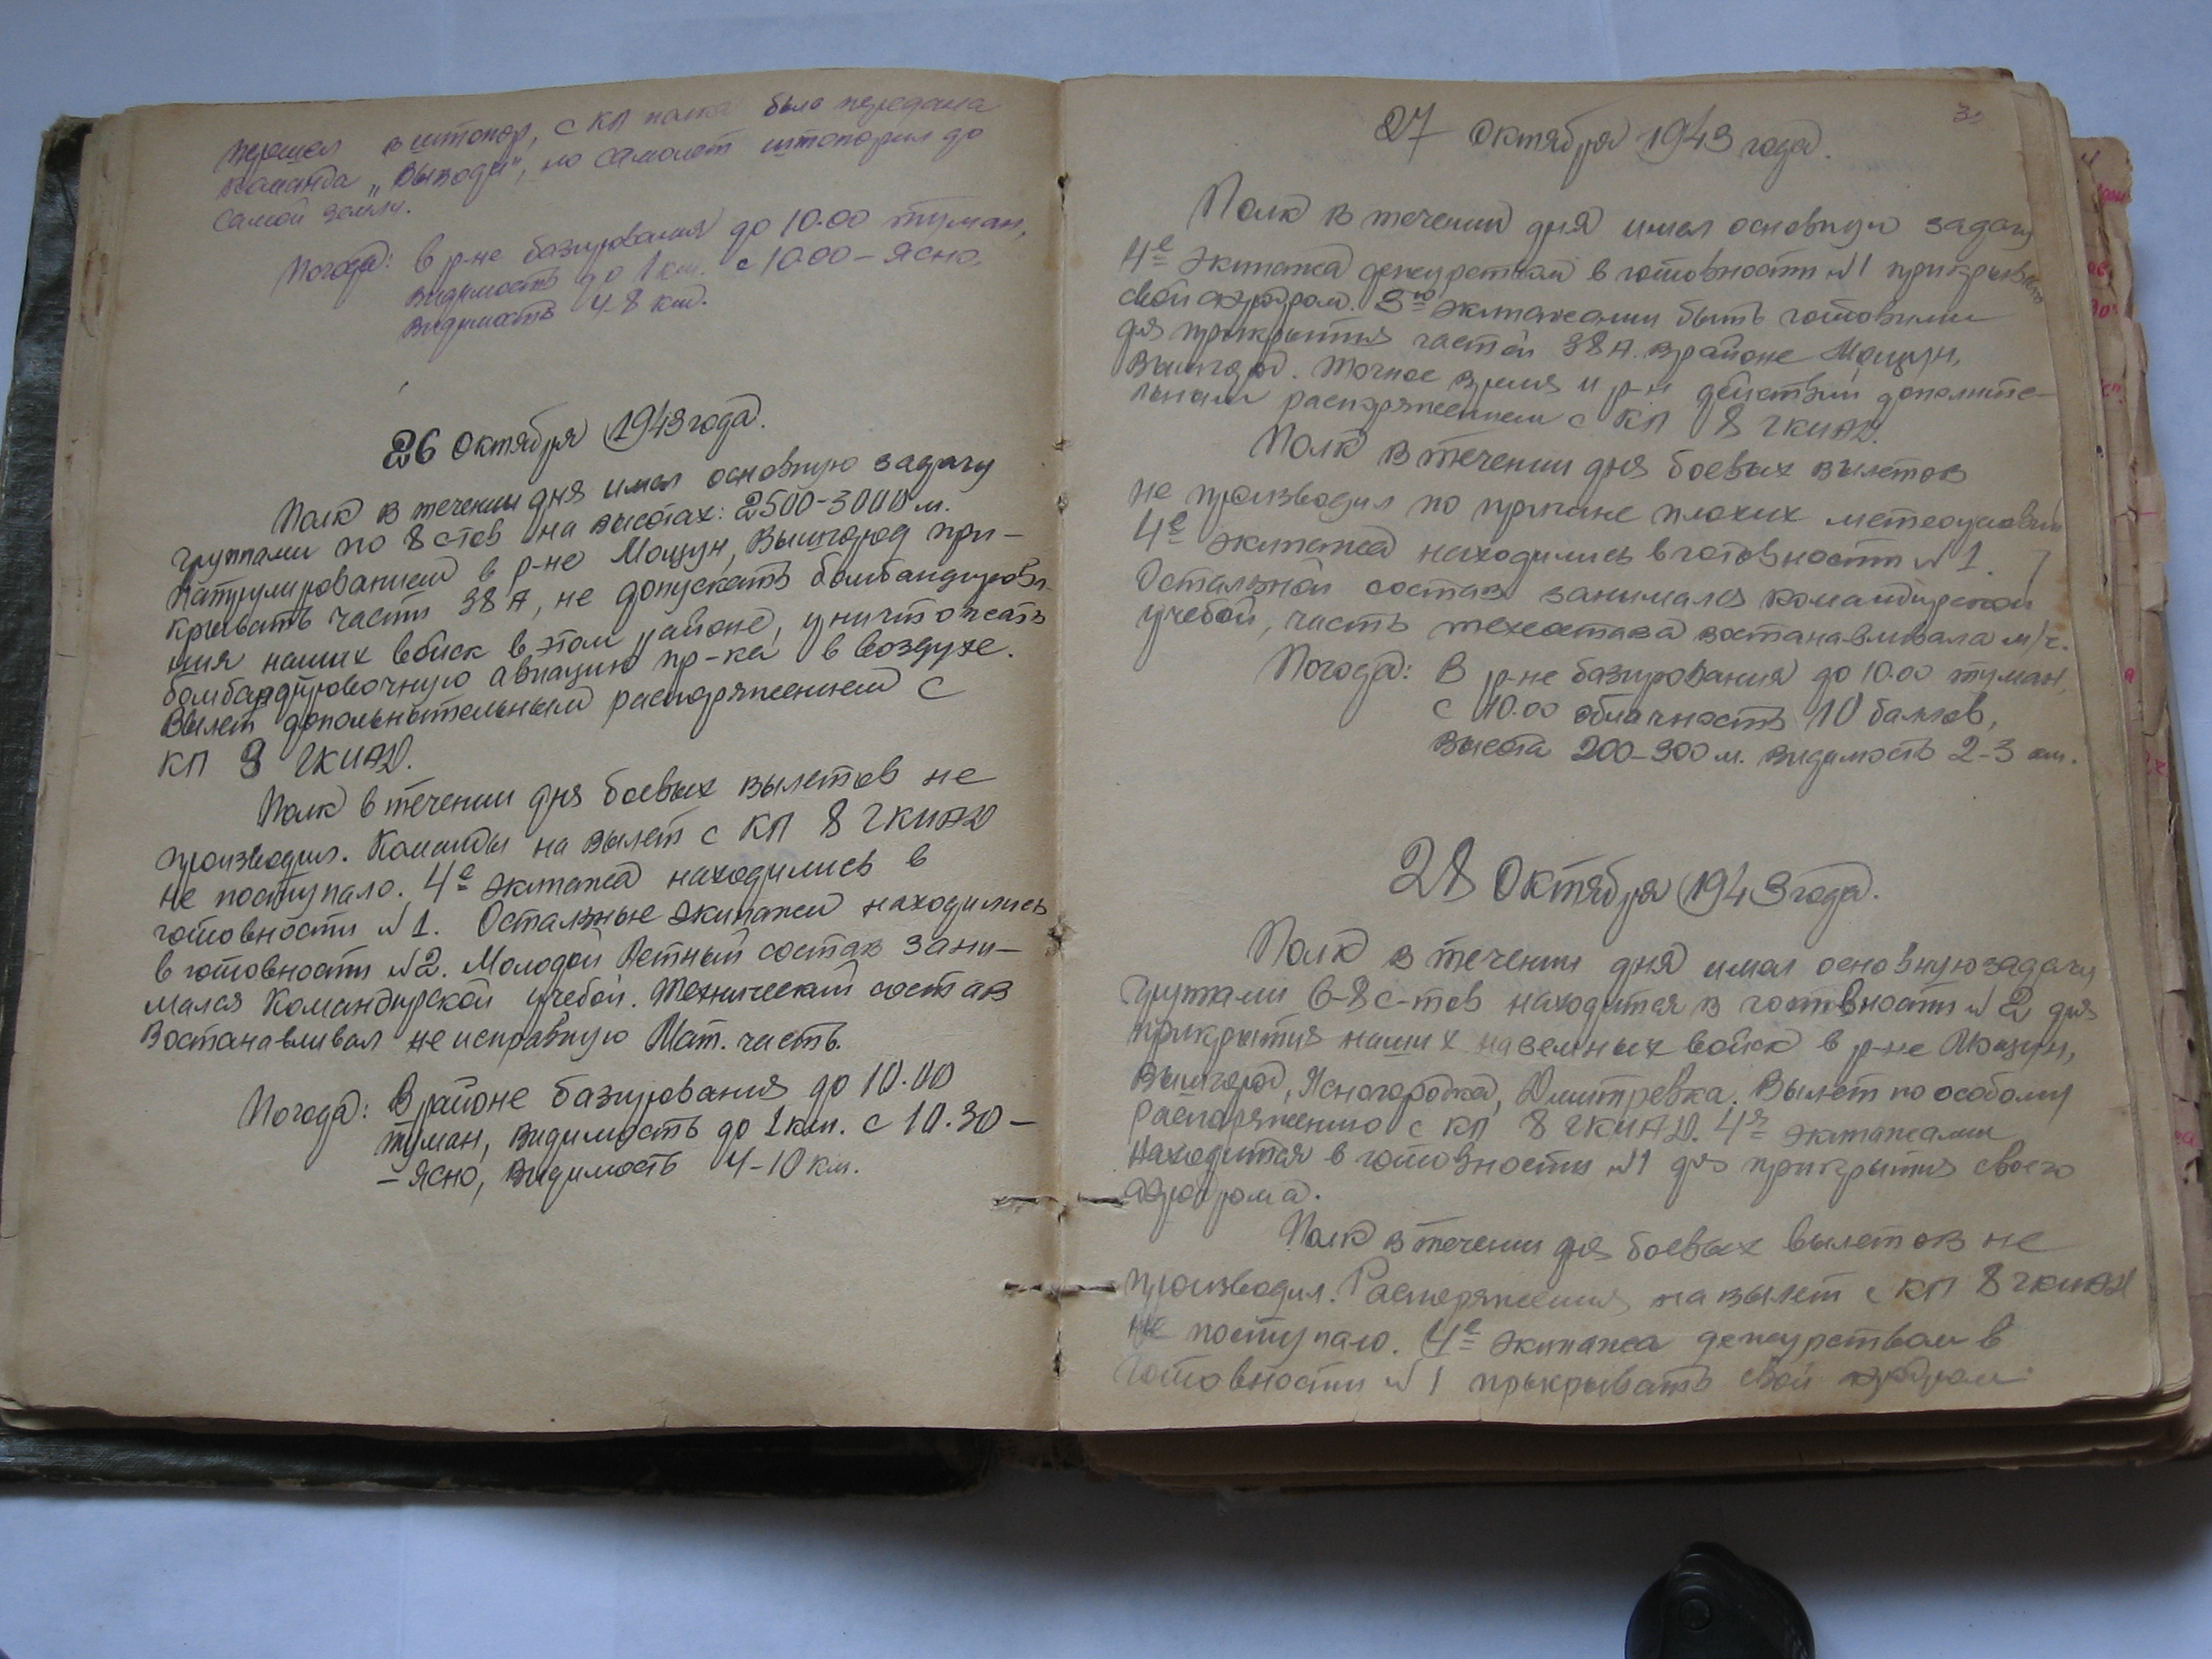 перешел в штопор, с КП полка была передана
команда „Выводи", но самолет штопорил до
самой земли.
Погода: в р-не базирования до 10.00 туман,
видимость до 1 км. с 10.00 – ясно,
видимость 4-8 км.
26 Октября 1943 года.
Полк в течении дня имел основную задачу
группами по 8 с-тов на высотах: 2500-3000 м.
патрулированием в р-не Мощун, Вышгород при-
крывать части 38 А, не допускать бомбандирова-
ния наших войск в этом районе, уничтожать
бомбандировочную авиацию пр-ка в воздухе.
Вылет дополнительным распоряжением с
КП 8 ГКИАД.
Полк в течении дня боевых вылетов не
производил. Команды на вылет с КП 8 ГКИАД
не поступало. 4е экипажа находились в
готовности №1. Остальные экипажи находились
в готовности №2. Молодой летный состав зани-
мался Командирской учебой. Технический состав
востанавливал неисправную Мат. часть.
Погода: В районе базирования до 10.00
туман, видимость до 1 км. с 10.30 –
– ясно, видимость 4-10 км.
27 Октября 1943 года.
Полк в течении дня имел основную задачу
4е экипажа дежурством в готовности №1 прикрывать
свой аэродром. 3ю экипажами быть готовыми
для прикрытия частей 38 А. в районе Мощун,
Вышгород. Точное время и р-н действий дополните-
льным распоряжением с КП 8 ГКИАД.
Полк в течении дня боевых вылетов
не производил по причине плохих метеоусловий
4е экипажа находились в готовности №1.
Остальной состав занимался командирской
учебой, часть техсостава востанавливала м/ч.
Погода: В р-не базирования до 10.00 туман,
с 10.00 облачность 10 балов,
высота 200-300 м. видимость 2-3 км.
28 Октября 1943 года.
Полк в течении дня имел основную задачу
группами 6-8 с-тов находится в готовности №2 для
прикрытия наших наземных войск в р-не Мощун,
Вышгород, Ясногородка, Дмитревка. Вылет по особому
распоряжению с КП 8 ГКИАД. 4я экипажами
находится в готовности №1 для прикрытия своего
аэродрома.
Полк в течении дня боевых вылетов не
производил. Распоряжения на вылет с КП 8 ГКИАД
не поступало. 4е экипажа дежурством в
готовности №1 прыкрывать свой аэродром.